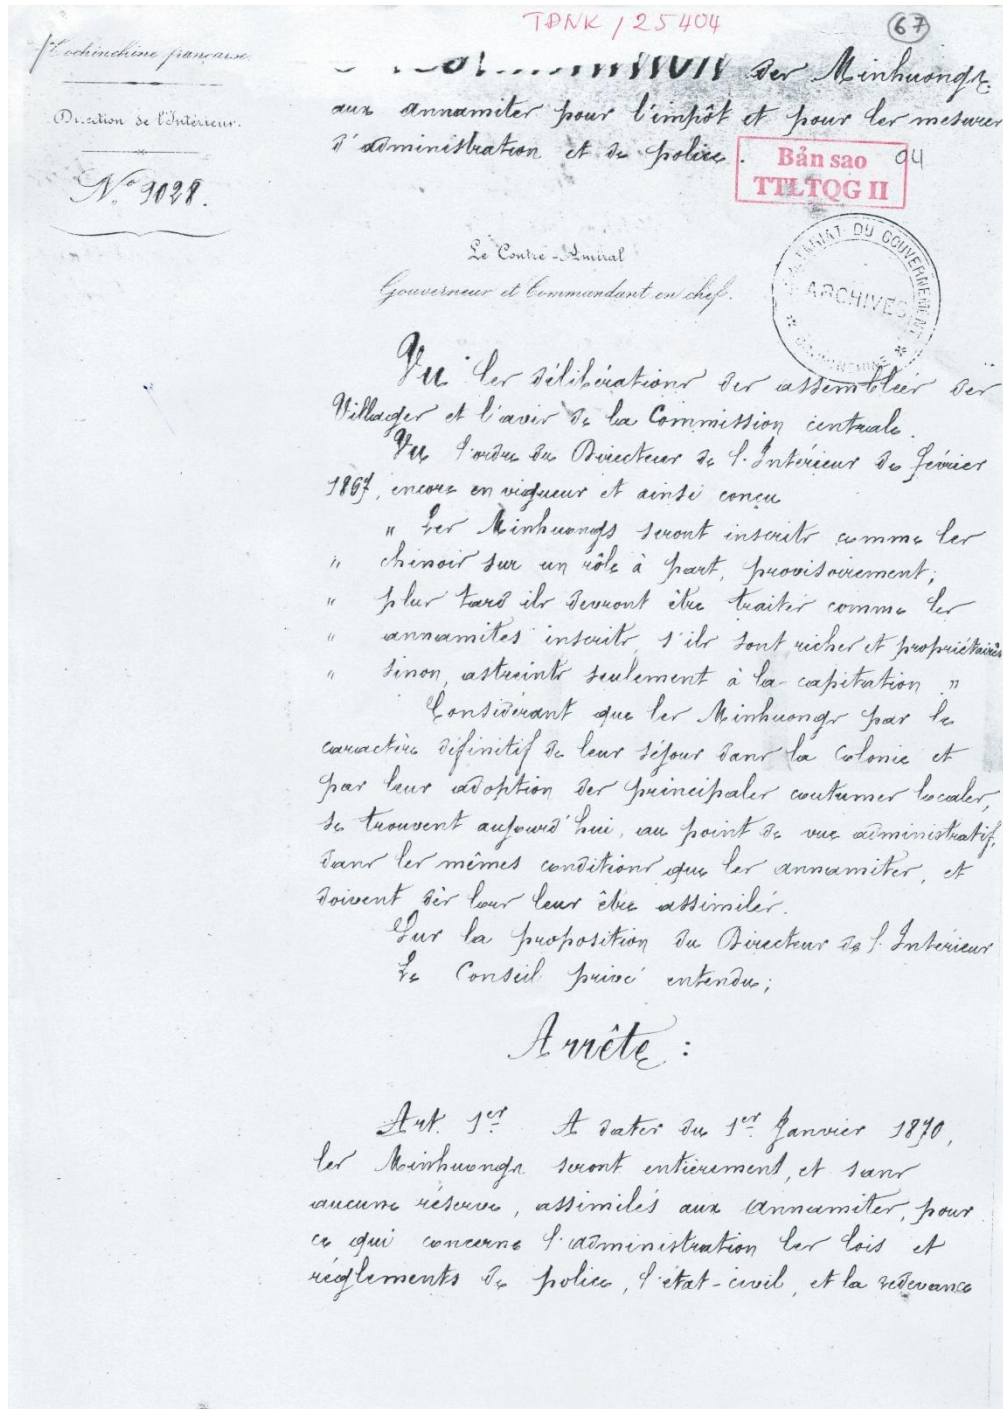 TDNK / 25404
67
Cochinchine française
Direction de l'Intérieur.
N.º 9028.
des Minhuongs
aux annamites pour l'impôt et pour les mesures
d'administration et de police.
94
Bản sao
TTLTQG II
Le Contre-Amiral
Gouverneur et Commandant en chef.
DU GOUVERNEMENT
ARCHIVES
Vu les délibérations des assemblées des
Villages et l'avis de la Commission centrale.
Vu l'ordre du Directeur de l'Intérieur de février
1867, encore en vigueur et ainsi conçu
" Les Minhuongs seront inscrits comme les
" chinois sur un rôle à part, provisoirement;
" plus tard ils devront être traités comme les
" annamites inscrits, s'ils sont riches et propriétaires
" sinon, astreints seulement à la capitation "
Considérant que les Minhuongs par le
caractère définitif de leur séjour dans la Colonie et
par leur adoption des principales coutumes locales,
se trouvent aujourd'hui, au point de vue administratif,
dans les mêmes conditions que les annamites, et
doivent dès lors leur être assimilés.
Sur la proposition du Directeur de l'Intérieur
Le Conseil privé entendu;
Arrête :
Art. 1er A dater du 1er Janvier 1870,
les Minhuongs seront entièrement, et sans
aucune réserve, assimilés aux annamites, pour
ce qui concerne l'administration les lois et
réglements de police, l'état-civil, et la redevance